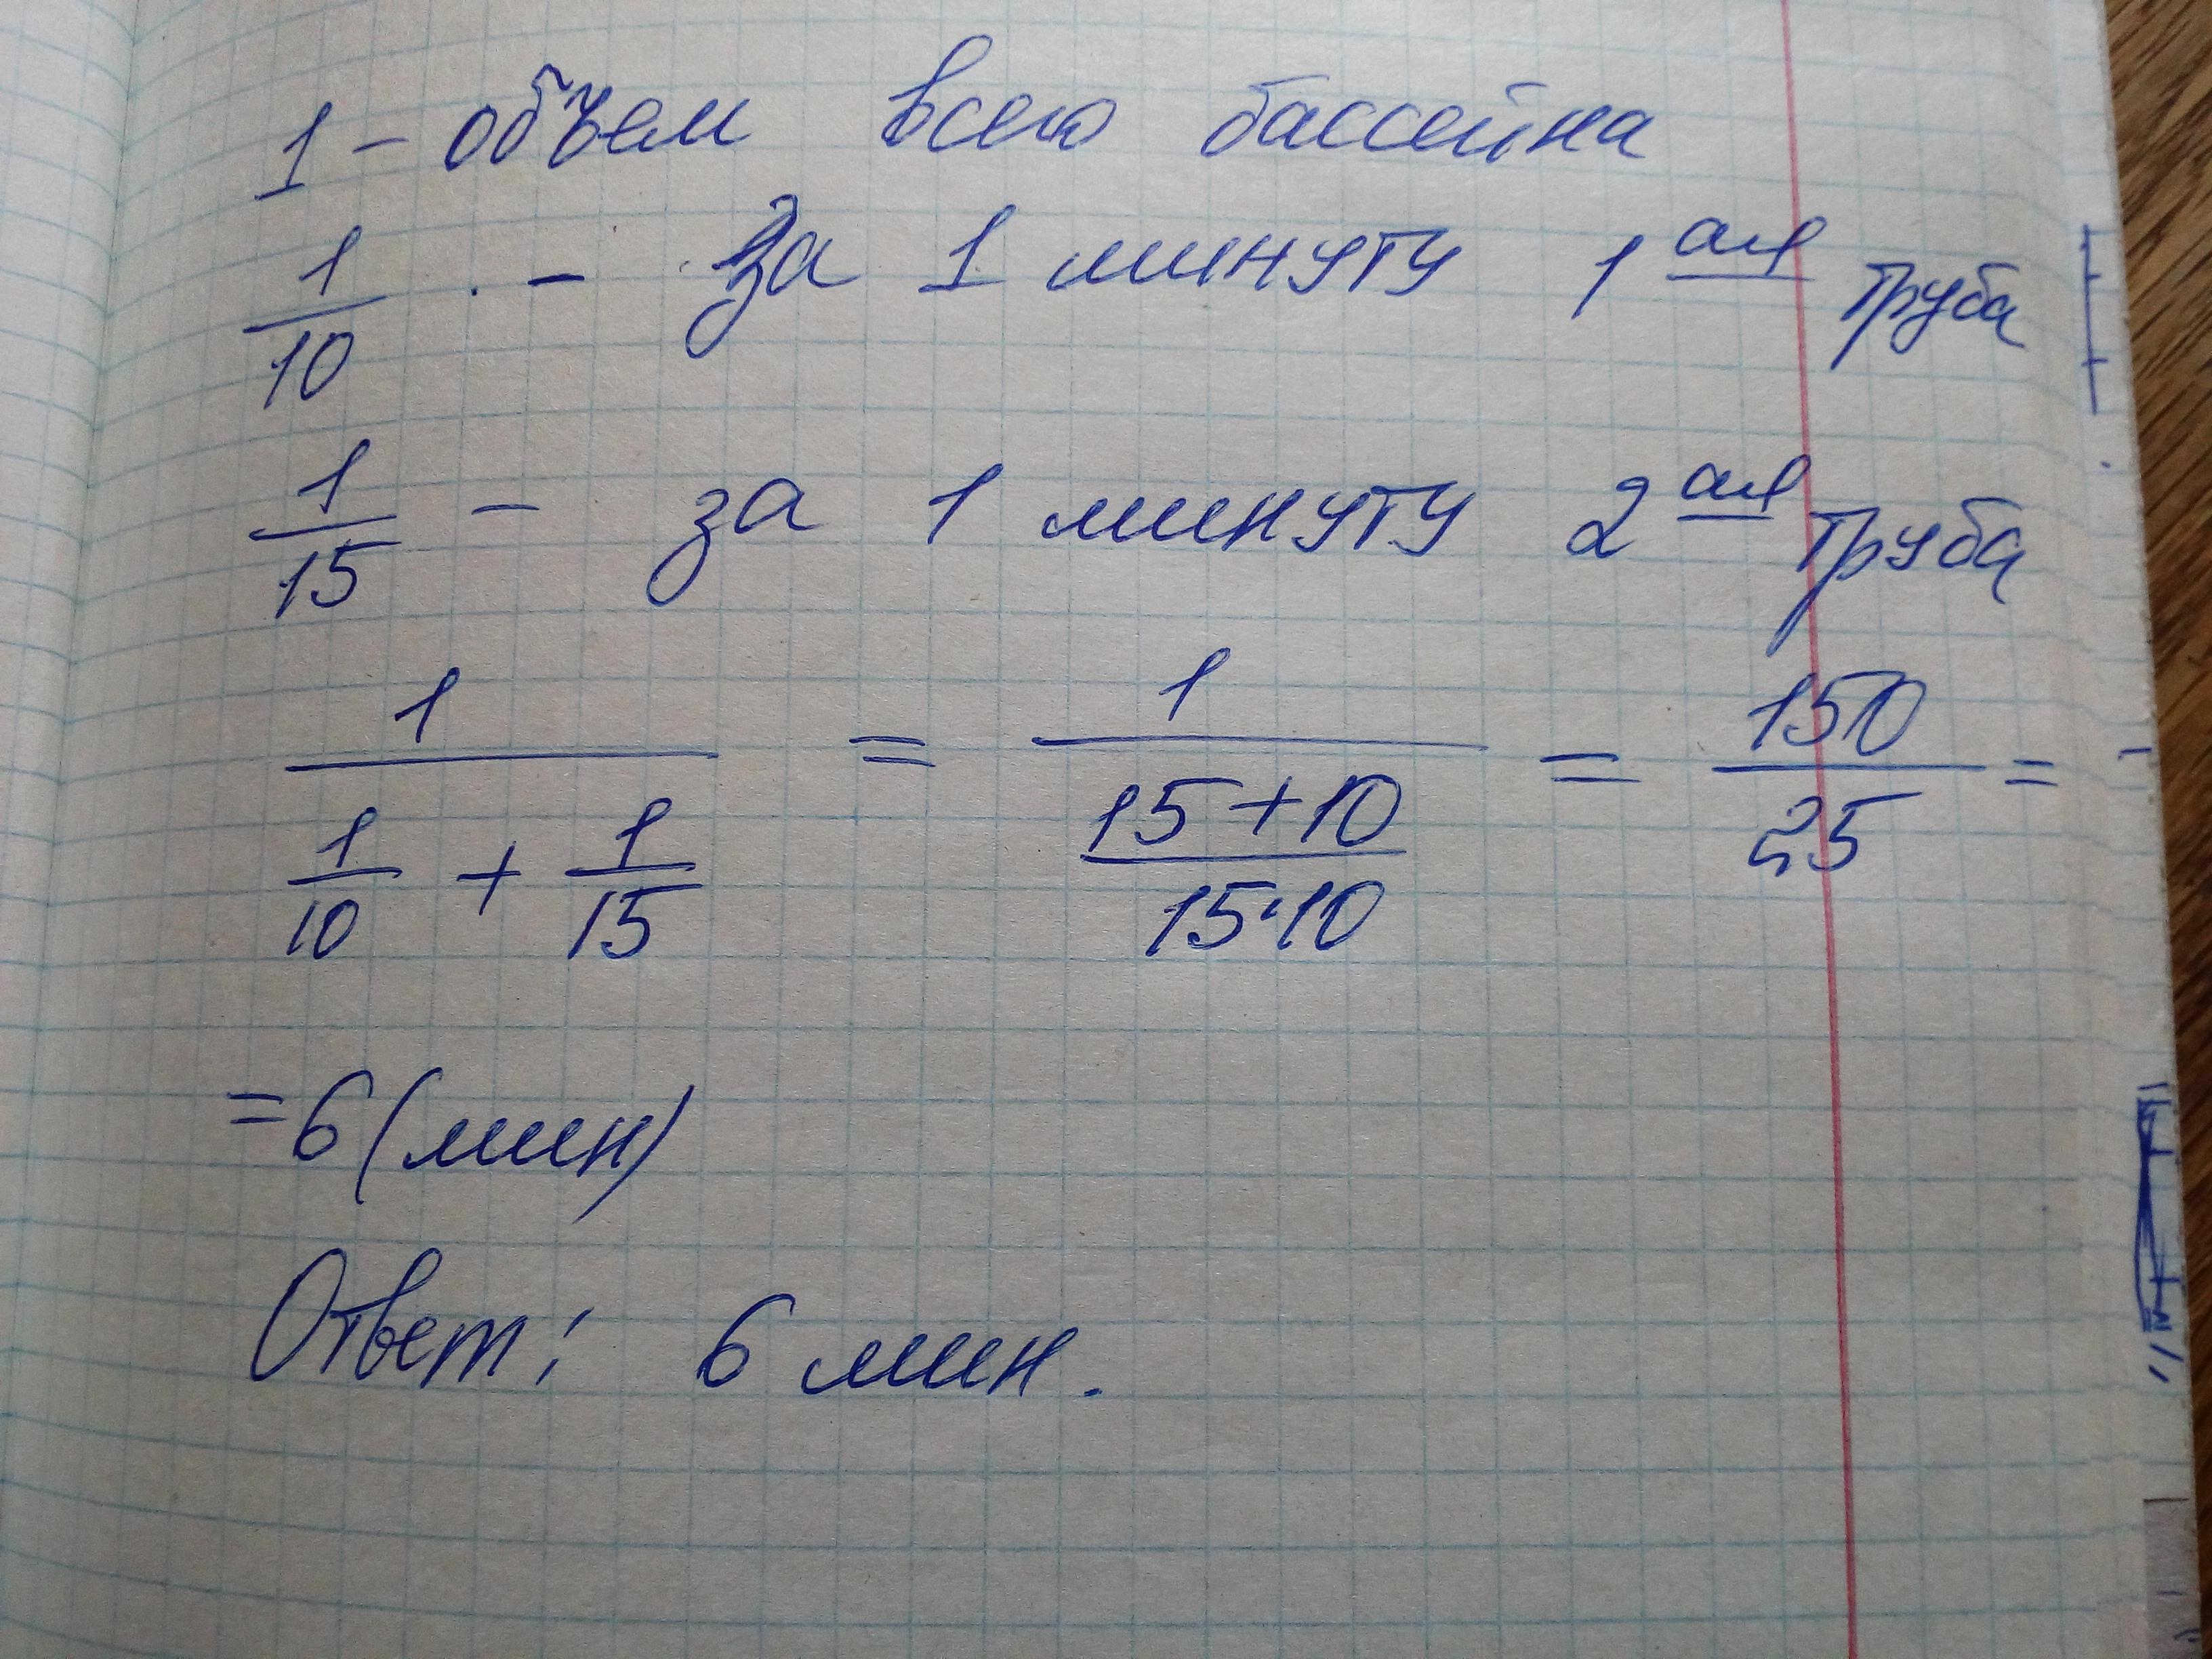 1 - объем всего бассейна
1/10 - за 1 минуту 1ая труба
1/15 - за 1 минуту 2ая труба
1/(1/10 + 1/15) = 1/((15+10)/(15·10)) = 150/25 =
= 6 (мин)
Ответ: 6 мин.